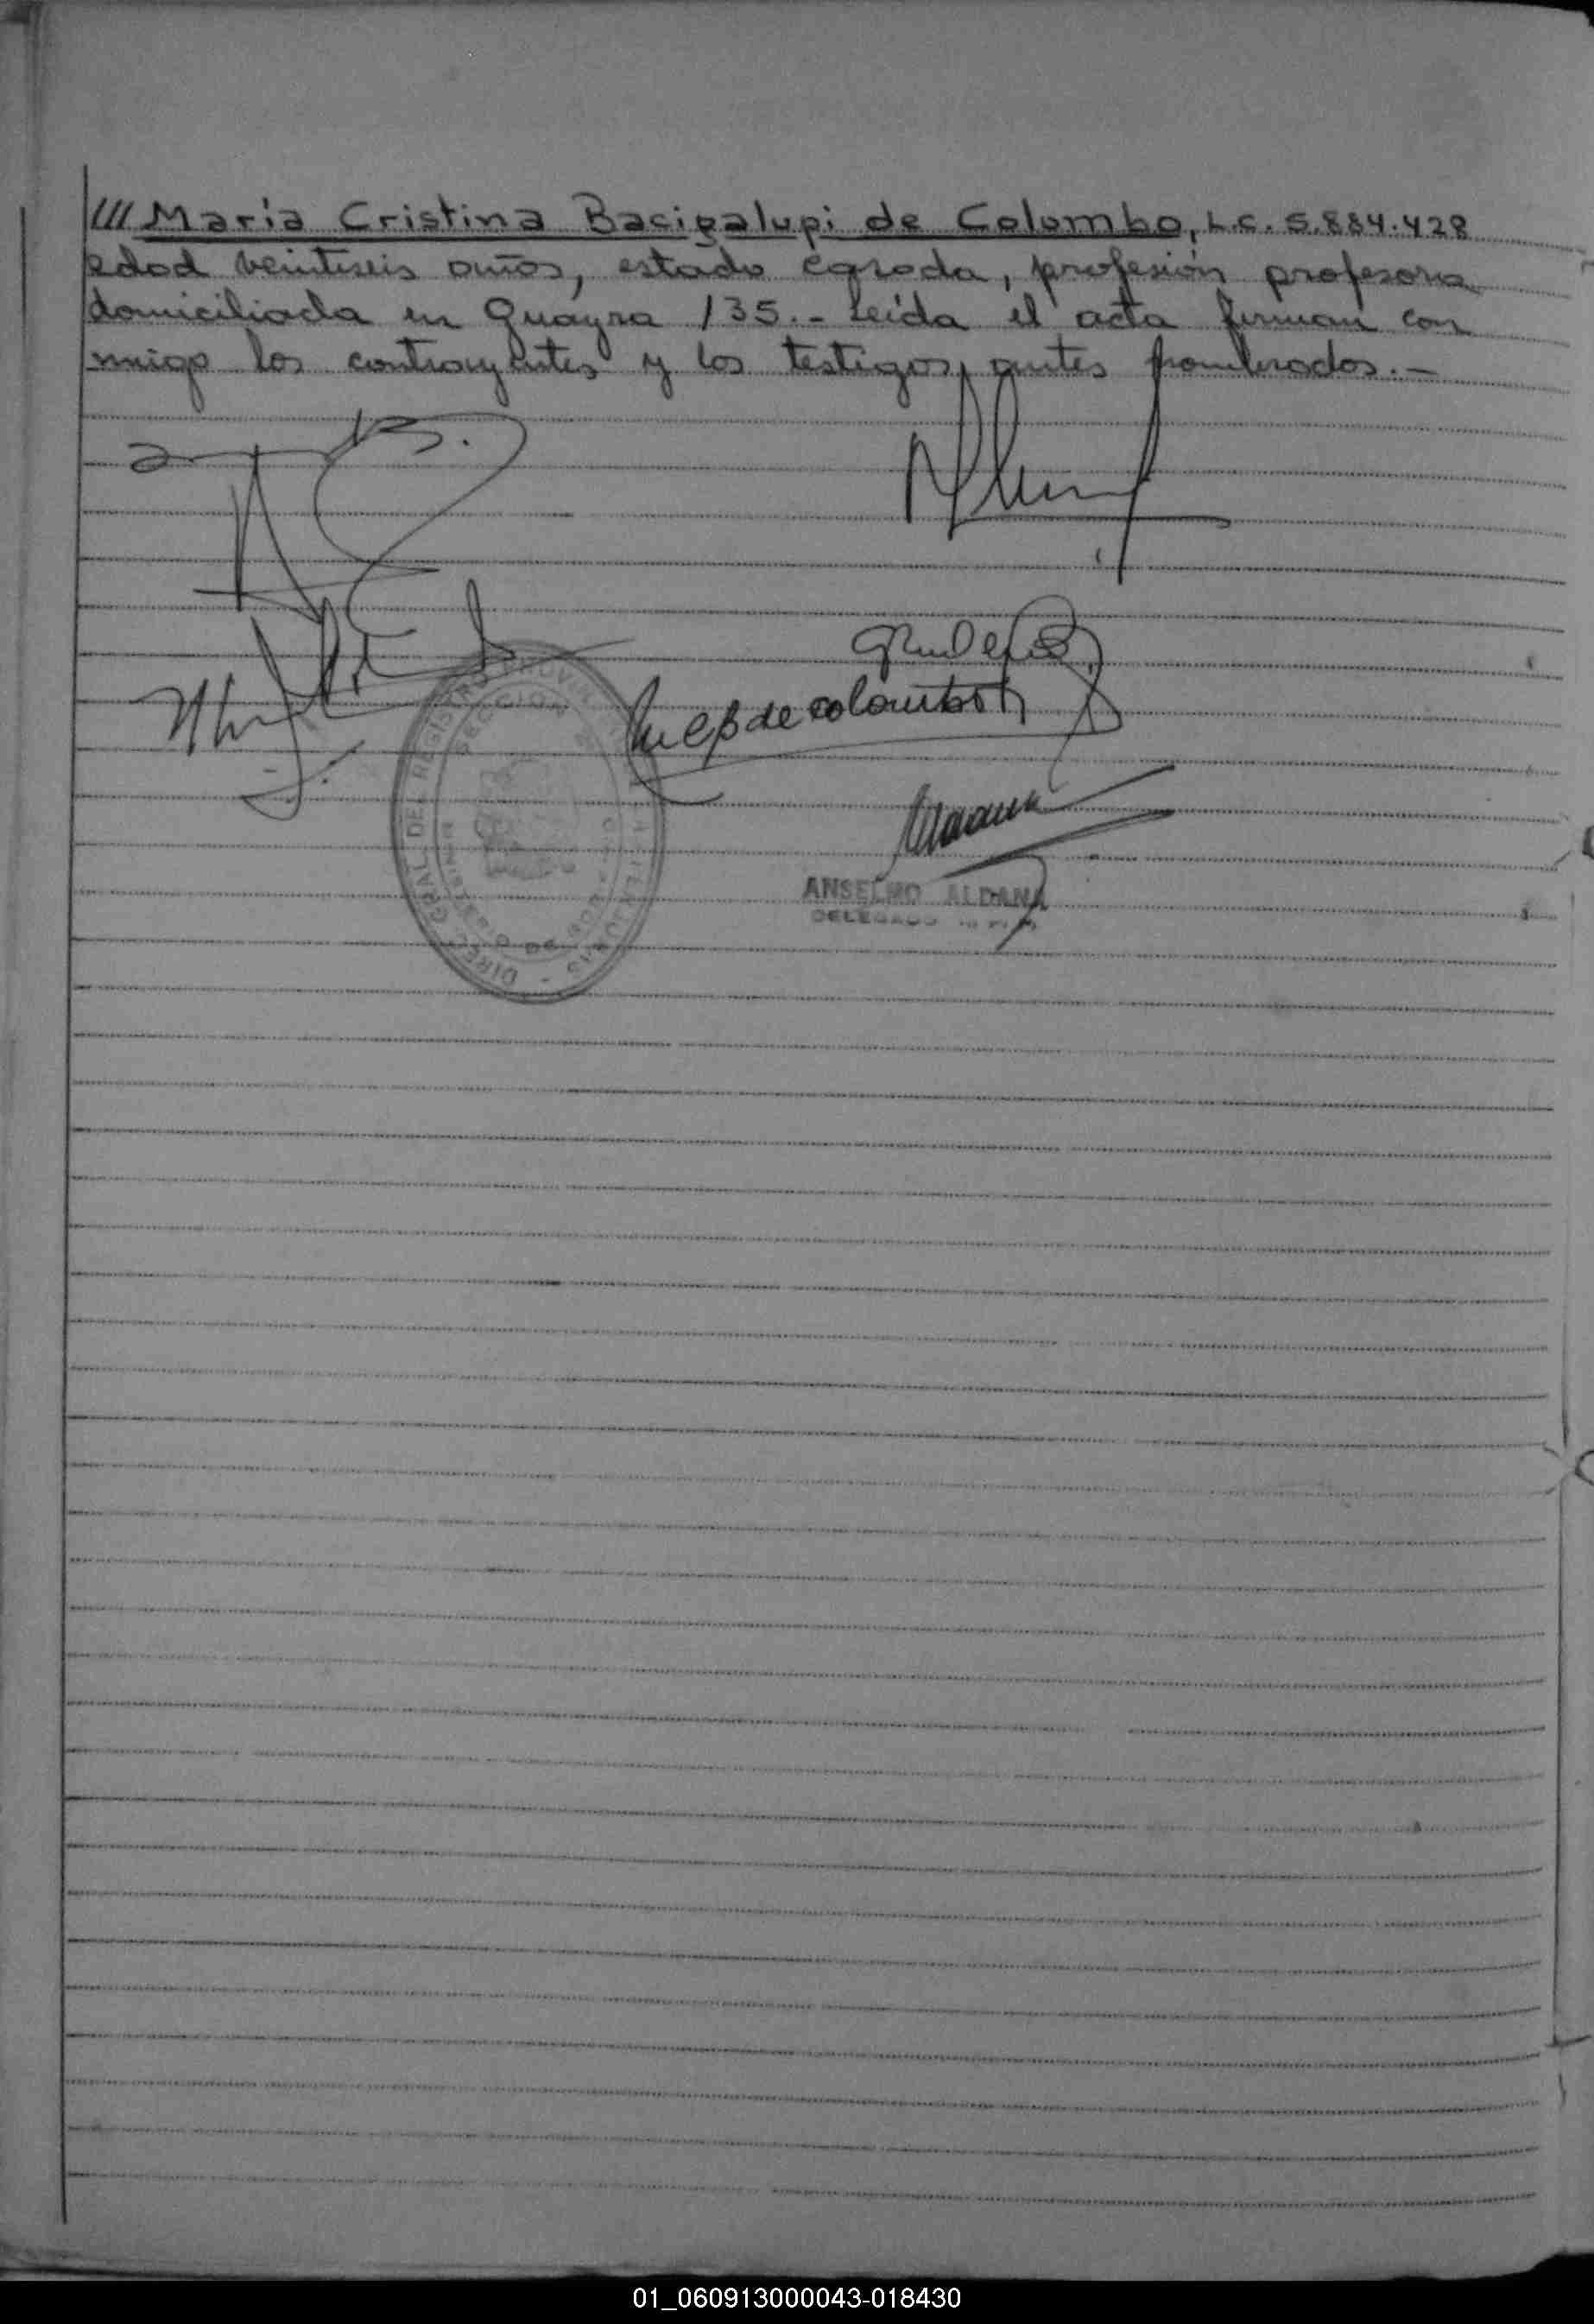 /// María Cristina Bacigalupi de Colombo, L.C. 5.884.428
edad veintiseis años, estado casada, profesión profesora
domiciliada en Guayra 135.- Leída el acta firman con
migo los contrayentes y los testigos antes nombrados.-
de Colombo
ANSELMO ALDANA
DELEGADO
DIREC. GRAL. DEL REGISTRO PROVINCIAL
SECCION
01_060913000043-018430